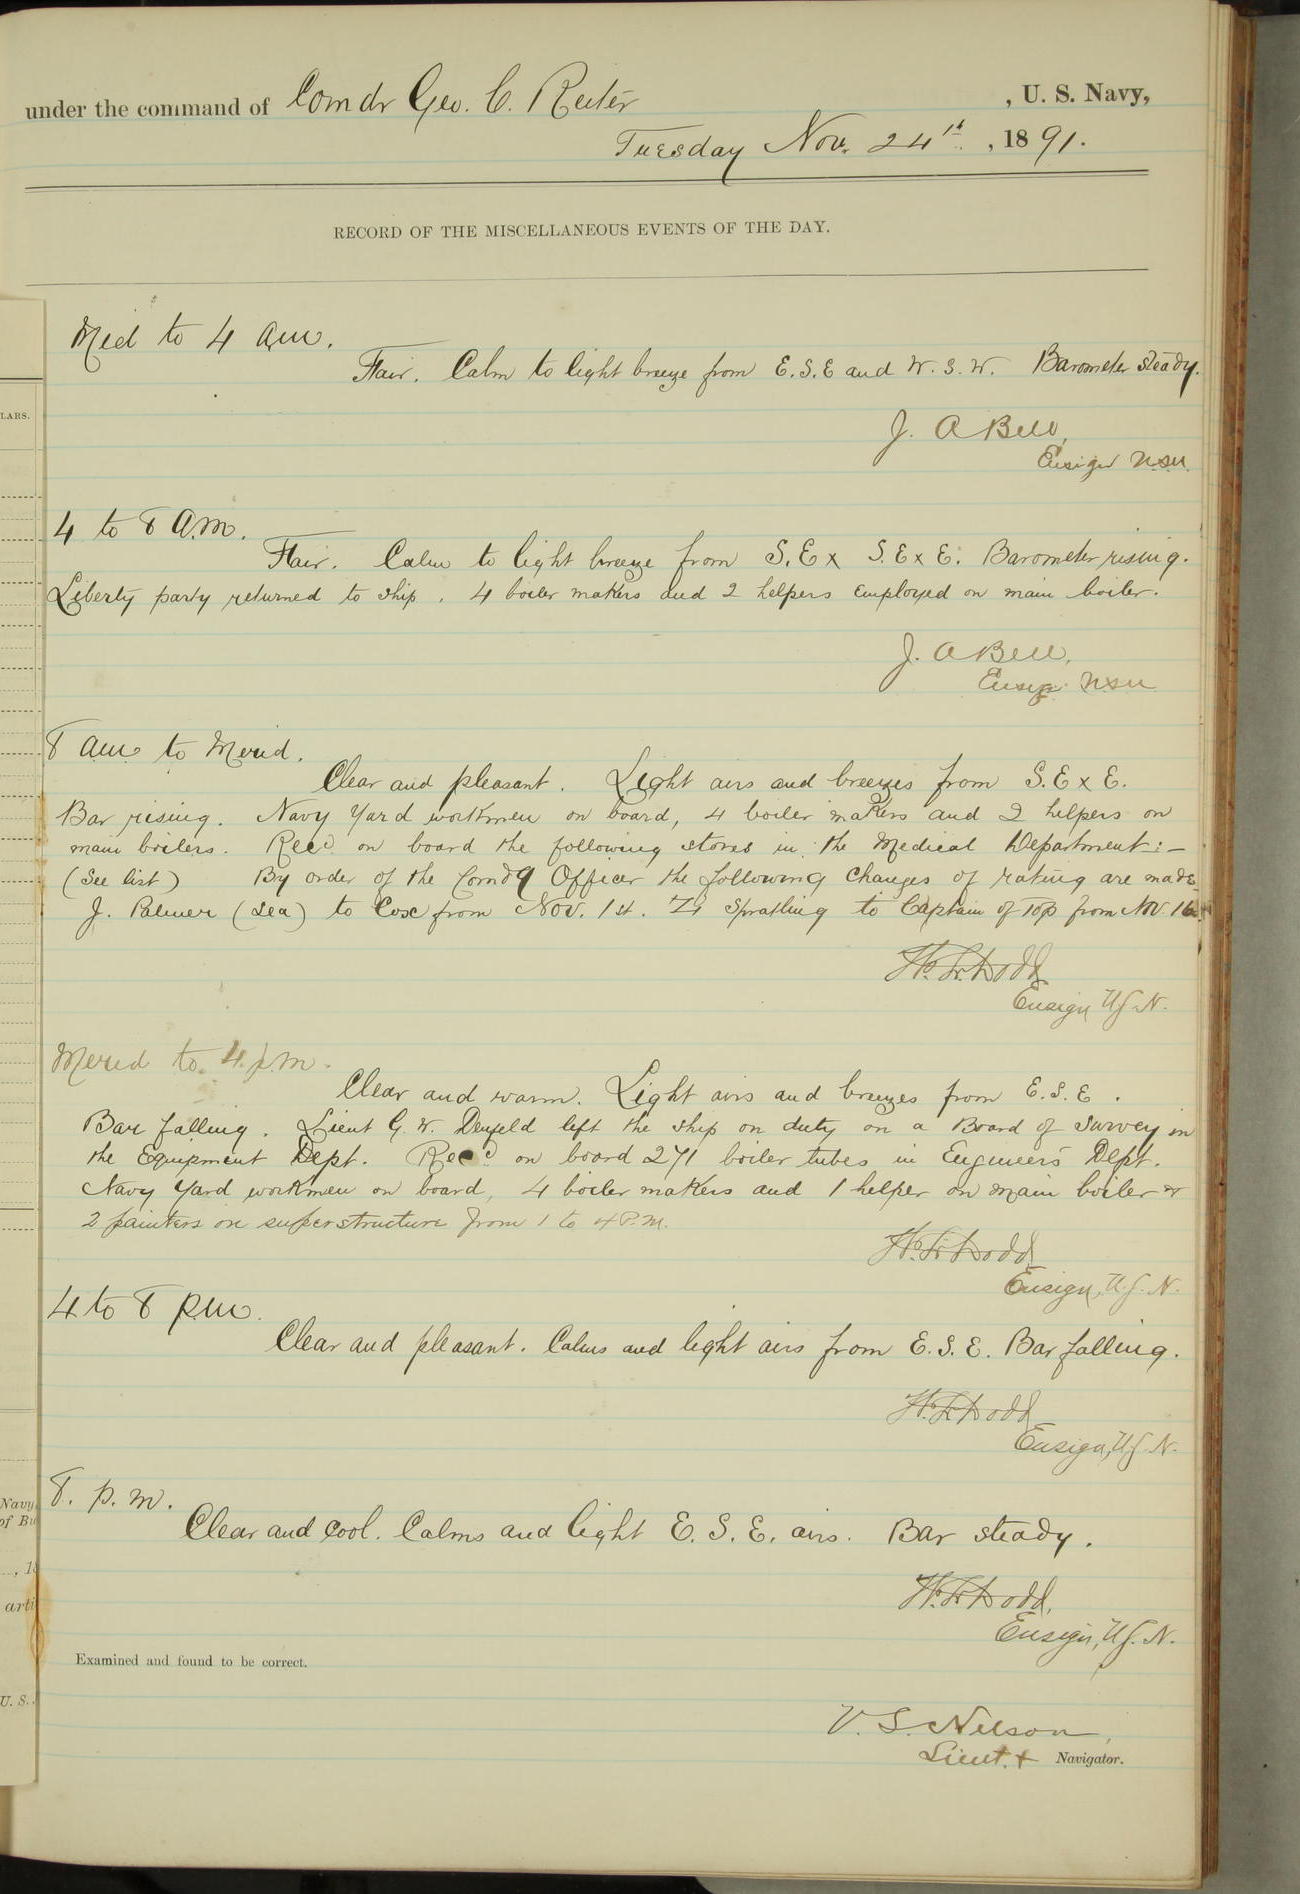 under the command of Comdr Geo. C. Reiter , U. S. Navy,
Tuesday Nov. 24th , 1891.
RECORD OF THE MISCELLANEOUS EVENTS OF THE DAY.
Mid to 4 am.
Fair. Calm to light breeze from E.S.E and W.S.W. Barometer steady.
J. A Bell,
Ensign USN
4 to 8 A.M.
Fair. Calm to light breeze from S.Ex S.ExE. Barometer rising.
Liberty party returned to ship. 4 boiler makers and 2 helpers employed on main boiler.
J. A Bell,
Ensign USN
8 am to Merid.
Clear and pleasant. Light airs and breezes from S.ExE.
Bar rising. Navy Yard workmen on board, 4 boiler makers and 2 helpers on
main boilers. Recd on board the following stores in the Medical Department:—
(See list) By order of the Comdg Officer the following changes of rating are made
J. Palmer (Sea) to Cox from Nov. 1st. Spratling to Captain of Top from Nov. 16
W. F. Dodd
Ensign, U.S.N.
Merid to 4 p.m.
Clear and warm. Light airs and breezes from E.S.E.
Bar falling. Lieut G. W. Denfeld left the ship on duty on a Board of Survey in
the Equipment Dept. Recd on board 271 boiler tubes in Engineers Dept.
Navy Yard workmen on board, 4 boiler makers and 1 helper on main boiler &
2 painters on superstructure from 1 to 4 P.M.
Dodd
Ensign, U.S.N.
4 to 8 p.m.
Clear and pleasant. Calms and light airs from E.S.E. Bar falling.
Dodd
Ensign, U.S.N.
8. p.m.
Clear and cool. Calms and light E.S.E. airs. Bar steady.
Dodd,
Ensign, U.S.N.
Examined and found to be correct.
V. S. Nelson,
Lieut. & Navigator.
LARS.
Navy
of Bu
, 18
arti
U. S.